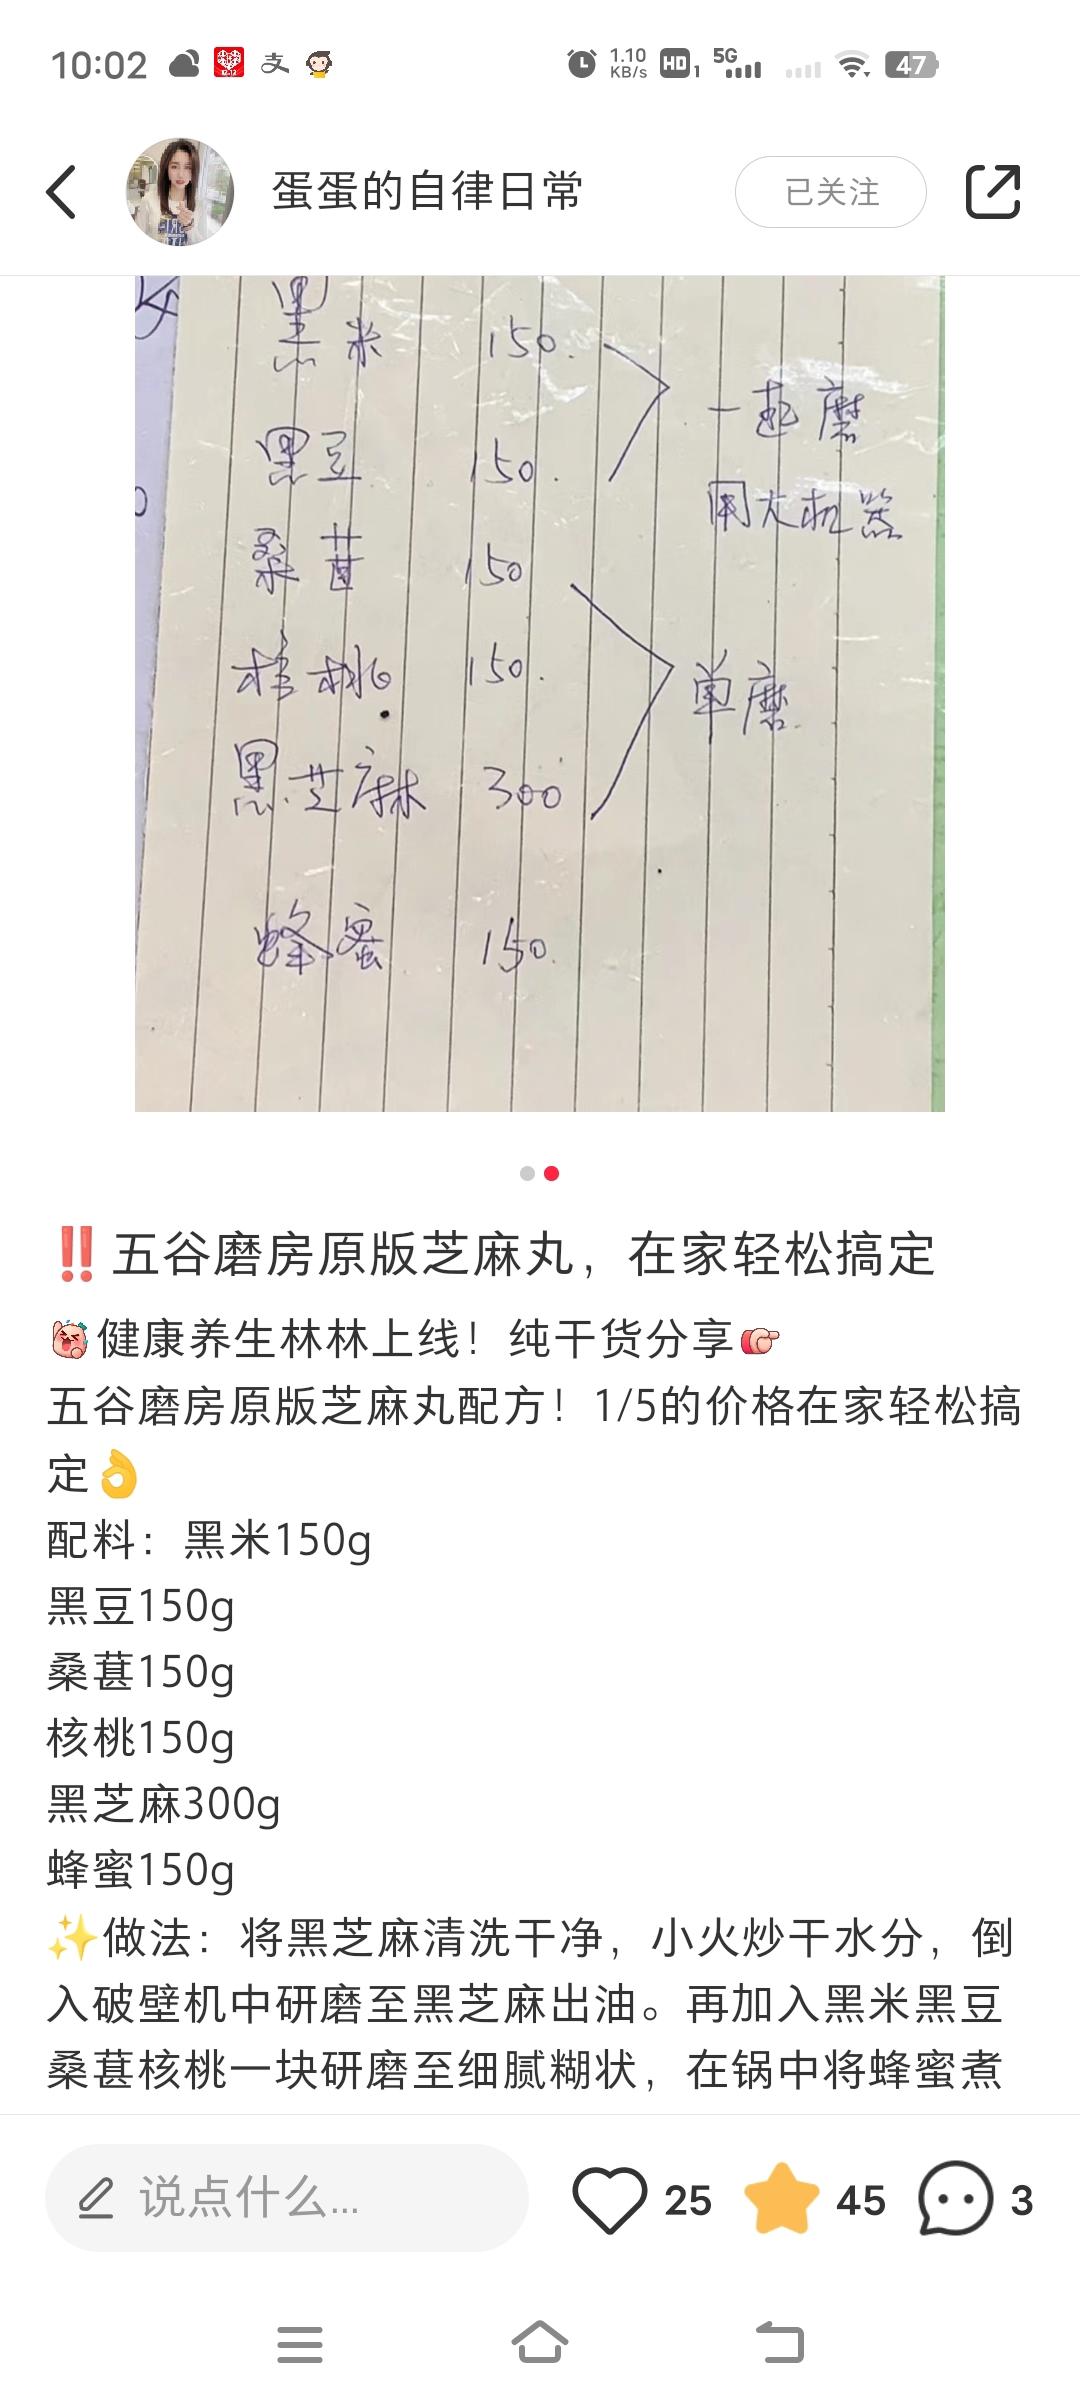 10:02
支
1.10
KB/s
HD 1
5G
47
蛋蛋的自律日常
已关注
黑米 150.
一起磨
黑豆 150.
用大机器
桑葚 150
核桃 150.
单磨.
黑.芝麻 300
蜂蜜 150.
‼️五谷磨房原版芝麻丸，在家轻松搞定
健康养生林林上线！纯干货分享
五谷磨房原版芝麻丸配方！1/5的价格在家轻松搞
定👌
配料：黑米150g
黑豆150g
桑葚150g
核桃150g
黑芝麻300g
蜂蜜150g
✨做法：将黑芝麻清洗干净，小火炒干水分，倒
入破壁机中研磨至黑芝麻出油。再加入黑米黑豆
桑葚核桃一块研磨至细腻糊状，在锅中将蜂蜜煮
说点什么...
25
45
3